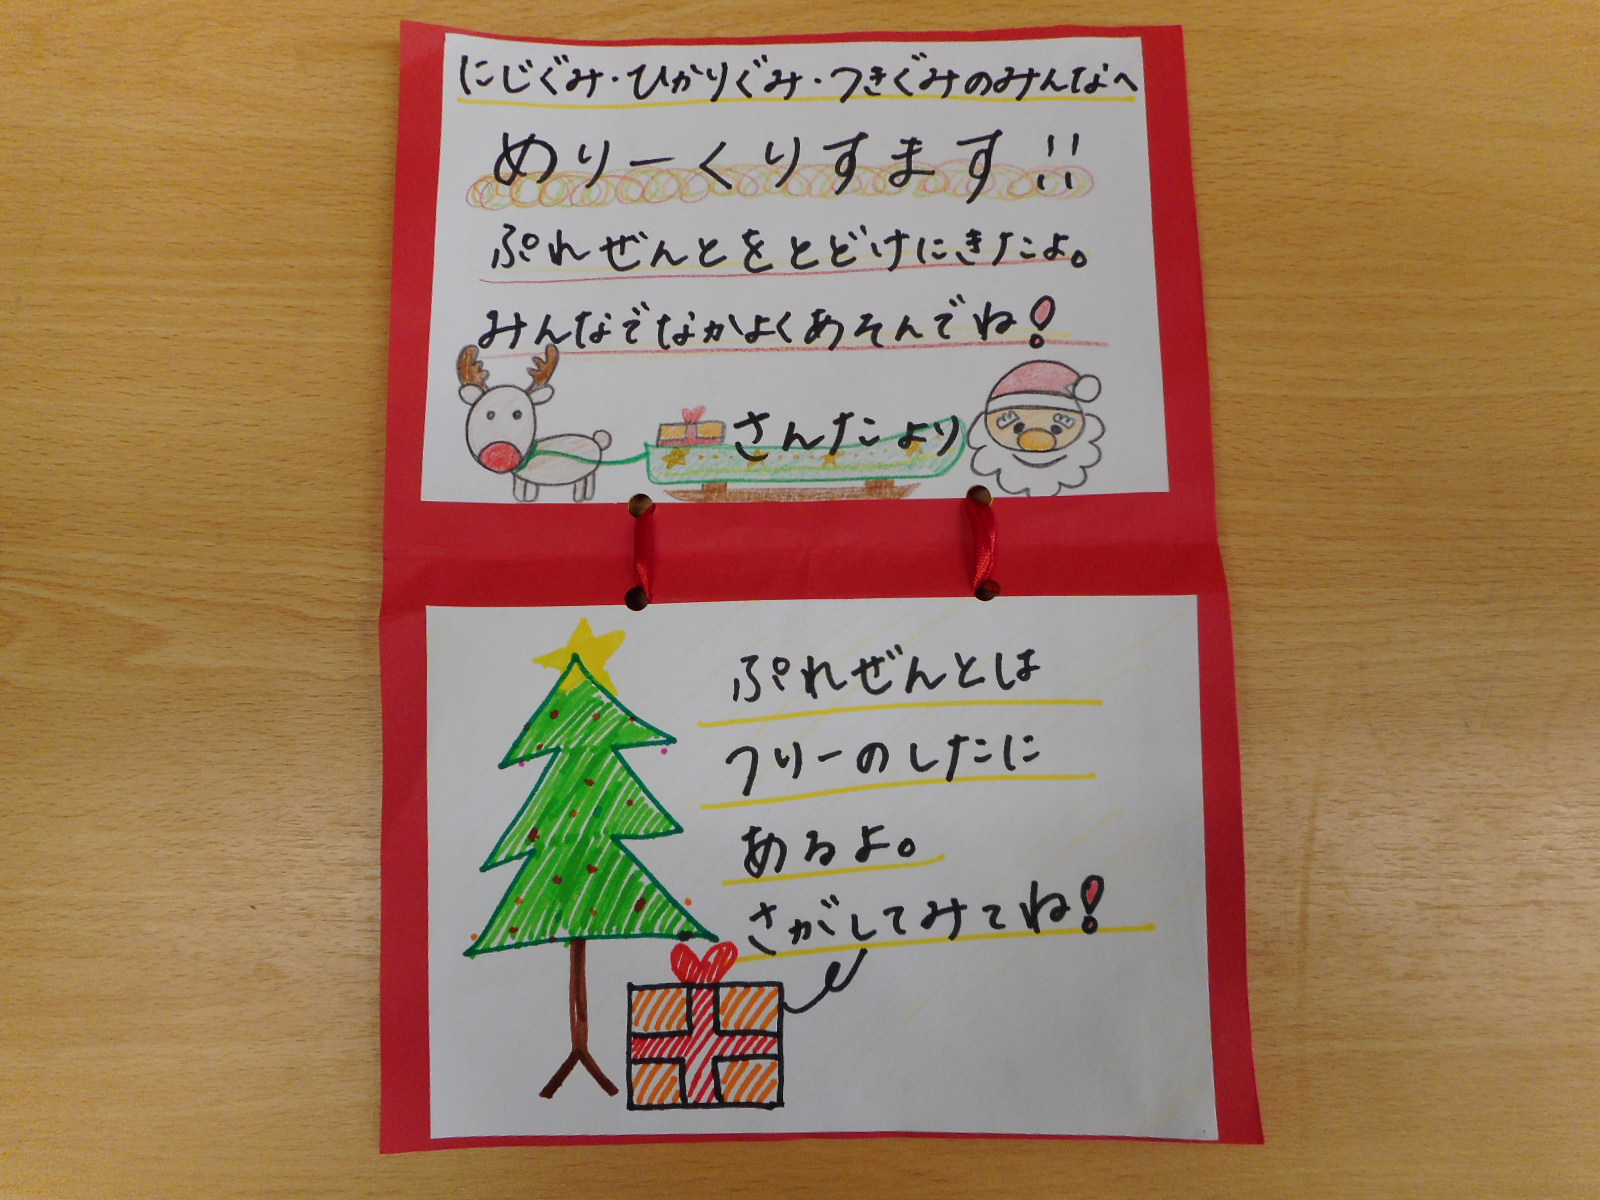 にじぐみ・ひかりぐみ・つきぐみのみんなへ
めりーくりすます!!
ぷれぜんとをとどけにきたよ。
みんなでなかよくあそんでね!
さんたより
ぷれぜんとは
つりーのしたに
あるよ。
さがしてみてね!